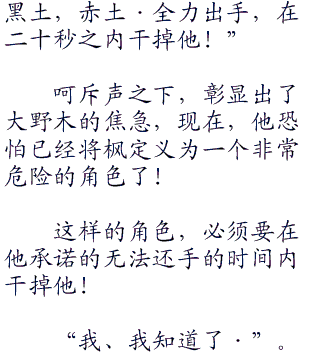 黑土，赤土·全力出手，在
二十秒之内干掉他！”
呵斥声之下，彰显出了
大野木的焦急，现在，他恐
怕已经将枫定义为一个非常
危险的角色了！
这样的角色，必须要在
他承诺的无法还手的时间内
干掉他！
“我、我知道了·”。